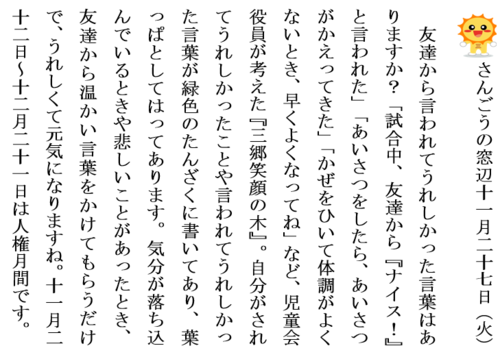 さんごうの窓辺十一月二十七日（火）
友達から言われてうれしかった言葉はあ
りますか？「試合中、友達から『ナイス！』
と言われた」「あいさつをしたら、あいさつ
がかえってきた」「かぜをひいて体調がよく
ないとき、早くよくなってね」など、児童会
役員が考えた『三郷笑顔の木』。自分がされ
てうれしかったことや言われてうれしかっ
た言葉が緑色のたんざくに書いてあり、葉
っぱとしてはってあります。気分が落ち込
んでいるときや悲しいことがあったとき、
友達から温かい言葉をかけてもらうだけ
で、うれしくて元気になりますね。十一月二
十二日～十二月二十一日は人権月間です。